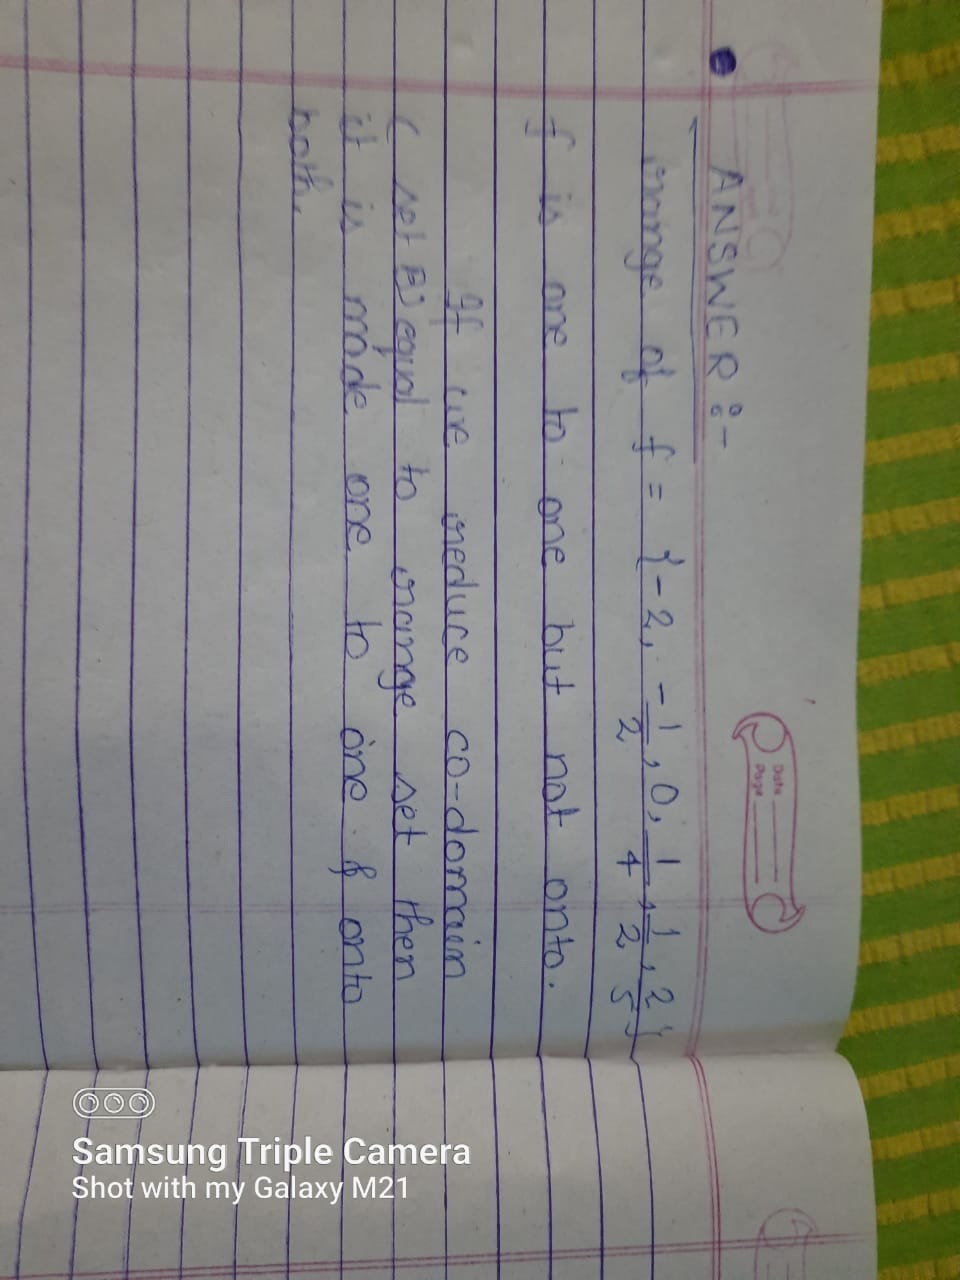 Date
Page
ANSWER :-
range of f = {-2, -1/2, 0, 1/4, 1/2, 2/5}
f is one to one but not onto.
If we reduce co-domain
( set B) equal to range set then
it is made one to one & onto
both.
Samsung Triple Camera
Shot with my Galaxy M21